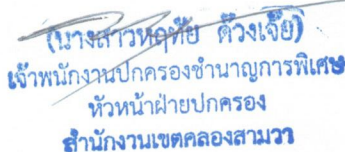 (นางสาวหฤทัย ด้วงเจีย)
เจ้าพนักงานปกครองชำนาญการพิเศษ
หัวหน้าฝ่ายปกครอง
สำนักงานเขตคลองสามวา